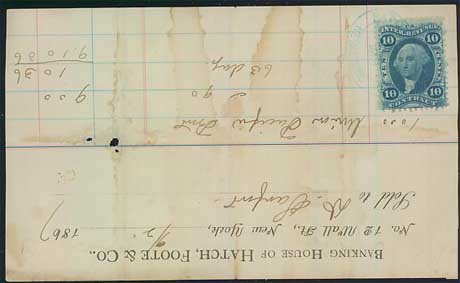 BANKING HOUSE OF HATCH, FOOTE & CO.,
No. 12 Wall St., New York, 9/2 1867
Sold to
1000 Union Pacific
90 900
63 day 10 36
9 10 36
INTER. REVENUE
10 10
TEN CENTS
10 10
CONTRACT